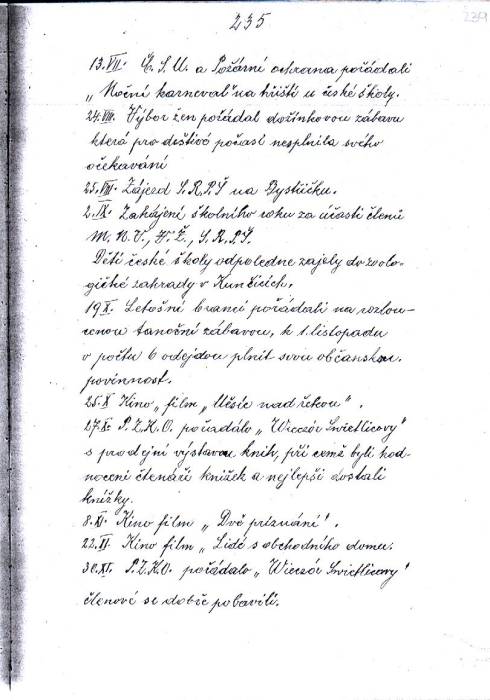 235
239
13.VII. Č.S.M. a Požární ochrana pořádali
„Noční karneval" na hřišti u české školy.
24.VIII. Výbor žen pořádal dožínkovou zábavu
která pro deštivé počasí nesplnila svého
očekávání
25.VIII. Zájezd S.R.P.Š na Bystřičku.
2.IX. Zahájení školního roku za účasti členů
M.N.V., V.Ž., S.R.P.Š.
Děti české školy odpoledne zajely do zoolo-
gické zahrady v Kunčicích.
19.X. Letošní branci pořádali na rozlou-
čenou taneční zábavou, k 1. listopadu
v počtu 6 odejdou plnit svou občanskou
povinnost.
25.X Kino „ film „ Měsíc nad řekou " .
27.X. P.Z.K.O. pořádalo „ Wieczór Świetlicowy "
s prodejní výstavou knih, při čemž byli hod-
noceni čtenáři knížek a nejlepší dostali
knížky.
8.XI. Kino film „ Dvě přiznání " .
22.XI. Kino film „ Lidé s obchodního domu.
30.XI. P.Z.K.O. pořádalo „ Wieczór Świetlicowy "
členové se dobře pobavili.